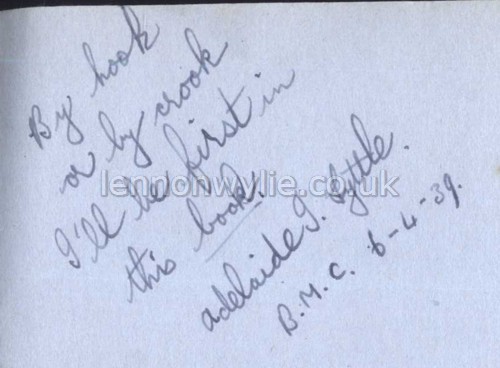 By hook
or by crook
I'll be first in
this book!
adelaide I. Lyttle.
B.M.C. 6-4-39.
lennonwylie.co.uk